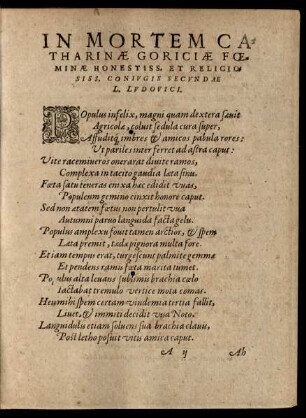 IN MORTEM CA-
THARINÆ GORICIÆ FOE-
MINÆ HONESTISS. ET RELIGIO
SISS. CONIVGIS SECVNDAE
L. LVDOVICI.
POpulus infelix, magni quam dextera sæuit
Agricolæ, coluit sedula cura super,
Assuditq́ imbres & amicos pabula rores:
Ut pariles inter ferret ad astra caput:
Vite racemiueros onerarat diuite ramos,
Complexa in tacito gaudia lata sinu.
Fœta satu teneras enixa hæc edidit vuas,
Populeum gemino cinxit honore caput.
Sed non ætatem fœtus non pertulit vua
Autumni paruo languida facta gelu.
Populus amplexu fouit tamen arctior, & spem
Lata premit, tæda pignora multa fore.
Et iam tempus erat, turgescunt palmite gemmæ
Et pendens ramis fœta marita tumet.
Populus alta leuans sublimis brachia cælo
Iactabat tremulo vertice mota comas.
Heu mihi spem certam vindemia tertia fallit,
Liuet, & immiti decidit vua Noto.
Languidulo etiam soluens sua brachia clauu,
Post letho posuit vitis amica caput.
A ij Ah